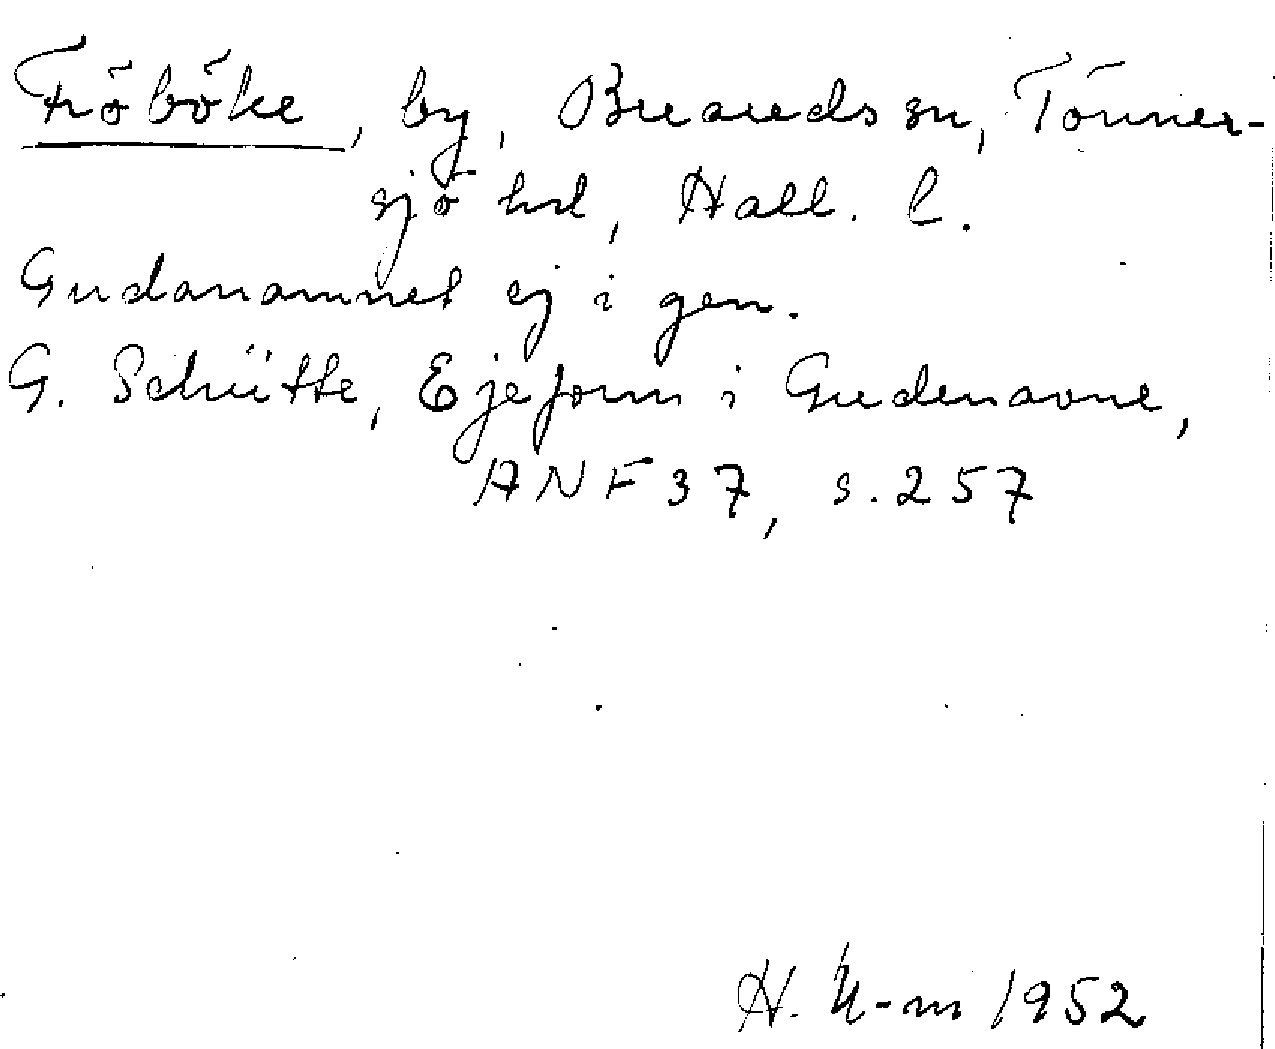 Fröböke, by, Breareds sn, Tönner-
sjö hd, Hall. l.
Gudanamnet ej i gen.
G. Schütte, Ejeform i Gudenavne,
ANF 37, s. 257
H. 1952